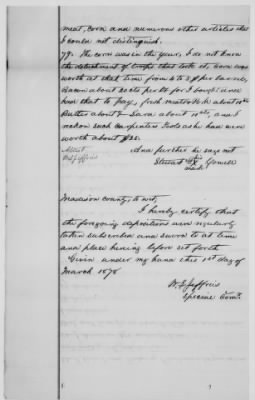 meat, corn and numerous other articles that
I could not distinguish.
79. The corn was in the year, I do not know
the detachment of troops that took it, corn was
worth at that time from 2 to 3 $ per barrel,
Bacon about 20cts per lb for I bought and
had that to pay, fresh meat
Butter about Lard about 10cts, and I
reckon such Carpenters Tools as he had were
worth about $20.
And further he says not
Attest
his
Stewart X Gomell
mark
Madison County, to wit,
I hereby certify that
the foregoing depositions were regularly
taken subscribed and sworn to at time
and place herein before set forth
Given under my hand this 1st day of
March 1878
Special Comr.